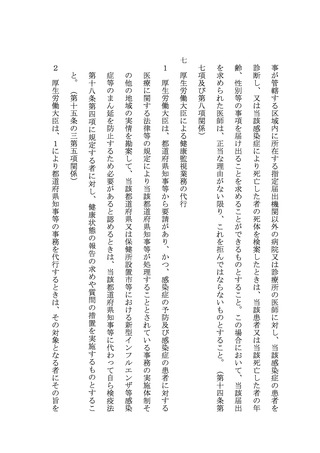 事が管轄する区域内に所在する指定届出機関以外の病院又は診療所の医師に対し、当該感染症の患者を
診断し、又は当該感染症により死亡した者の死体を検案したときは、当該患者又は当該死亡した者の年
齢、性別等の事項を届け出ることを求めることができるものとすること。この場合において、当該届出
を求められた医師は、正当な理由がない限り、これを拒んではならないものとすること。（第十四条第
七項及び第八項関係）
七 厚生労働大臣による健康監視業務の代行
１ 厚生労働大臣は、都道府県知事等から要請があり、かつ、感染症の予防及び感染症の患者に対する
医療に関する法律等の規定により当該都道府県知事等が処理することとされている事務の実施体制そ
の他の地域の実情を勘案して、当該都道府県又は保健所設置市等における新型インフルエンザ等感染
症等のまん延を防止するため必要があると認めるときは、当該都道府県知事等に代わって自ら検疫法
第十八条第四項に規定する者に対し、健康状態の報告の求めや質問の措置を実施するものとするこ
と。（第十五条の三第五項関係）
２ 厚生労働大臣は、１により都道府県知事等の事務を代行するときは、その対象となる者にその旨を